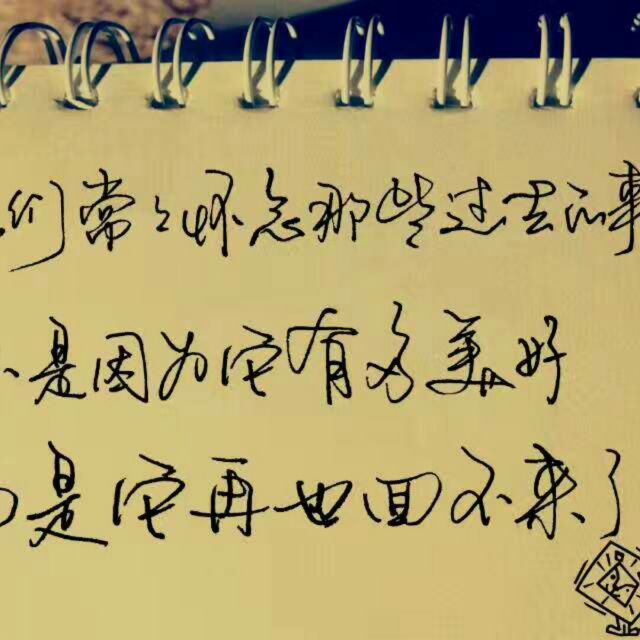 们常々怀念那些过去的事
不是因为它有多美好
而是它再也回不来了